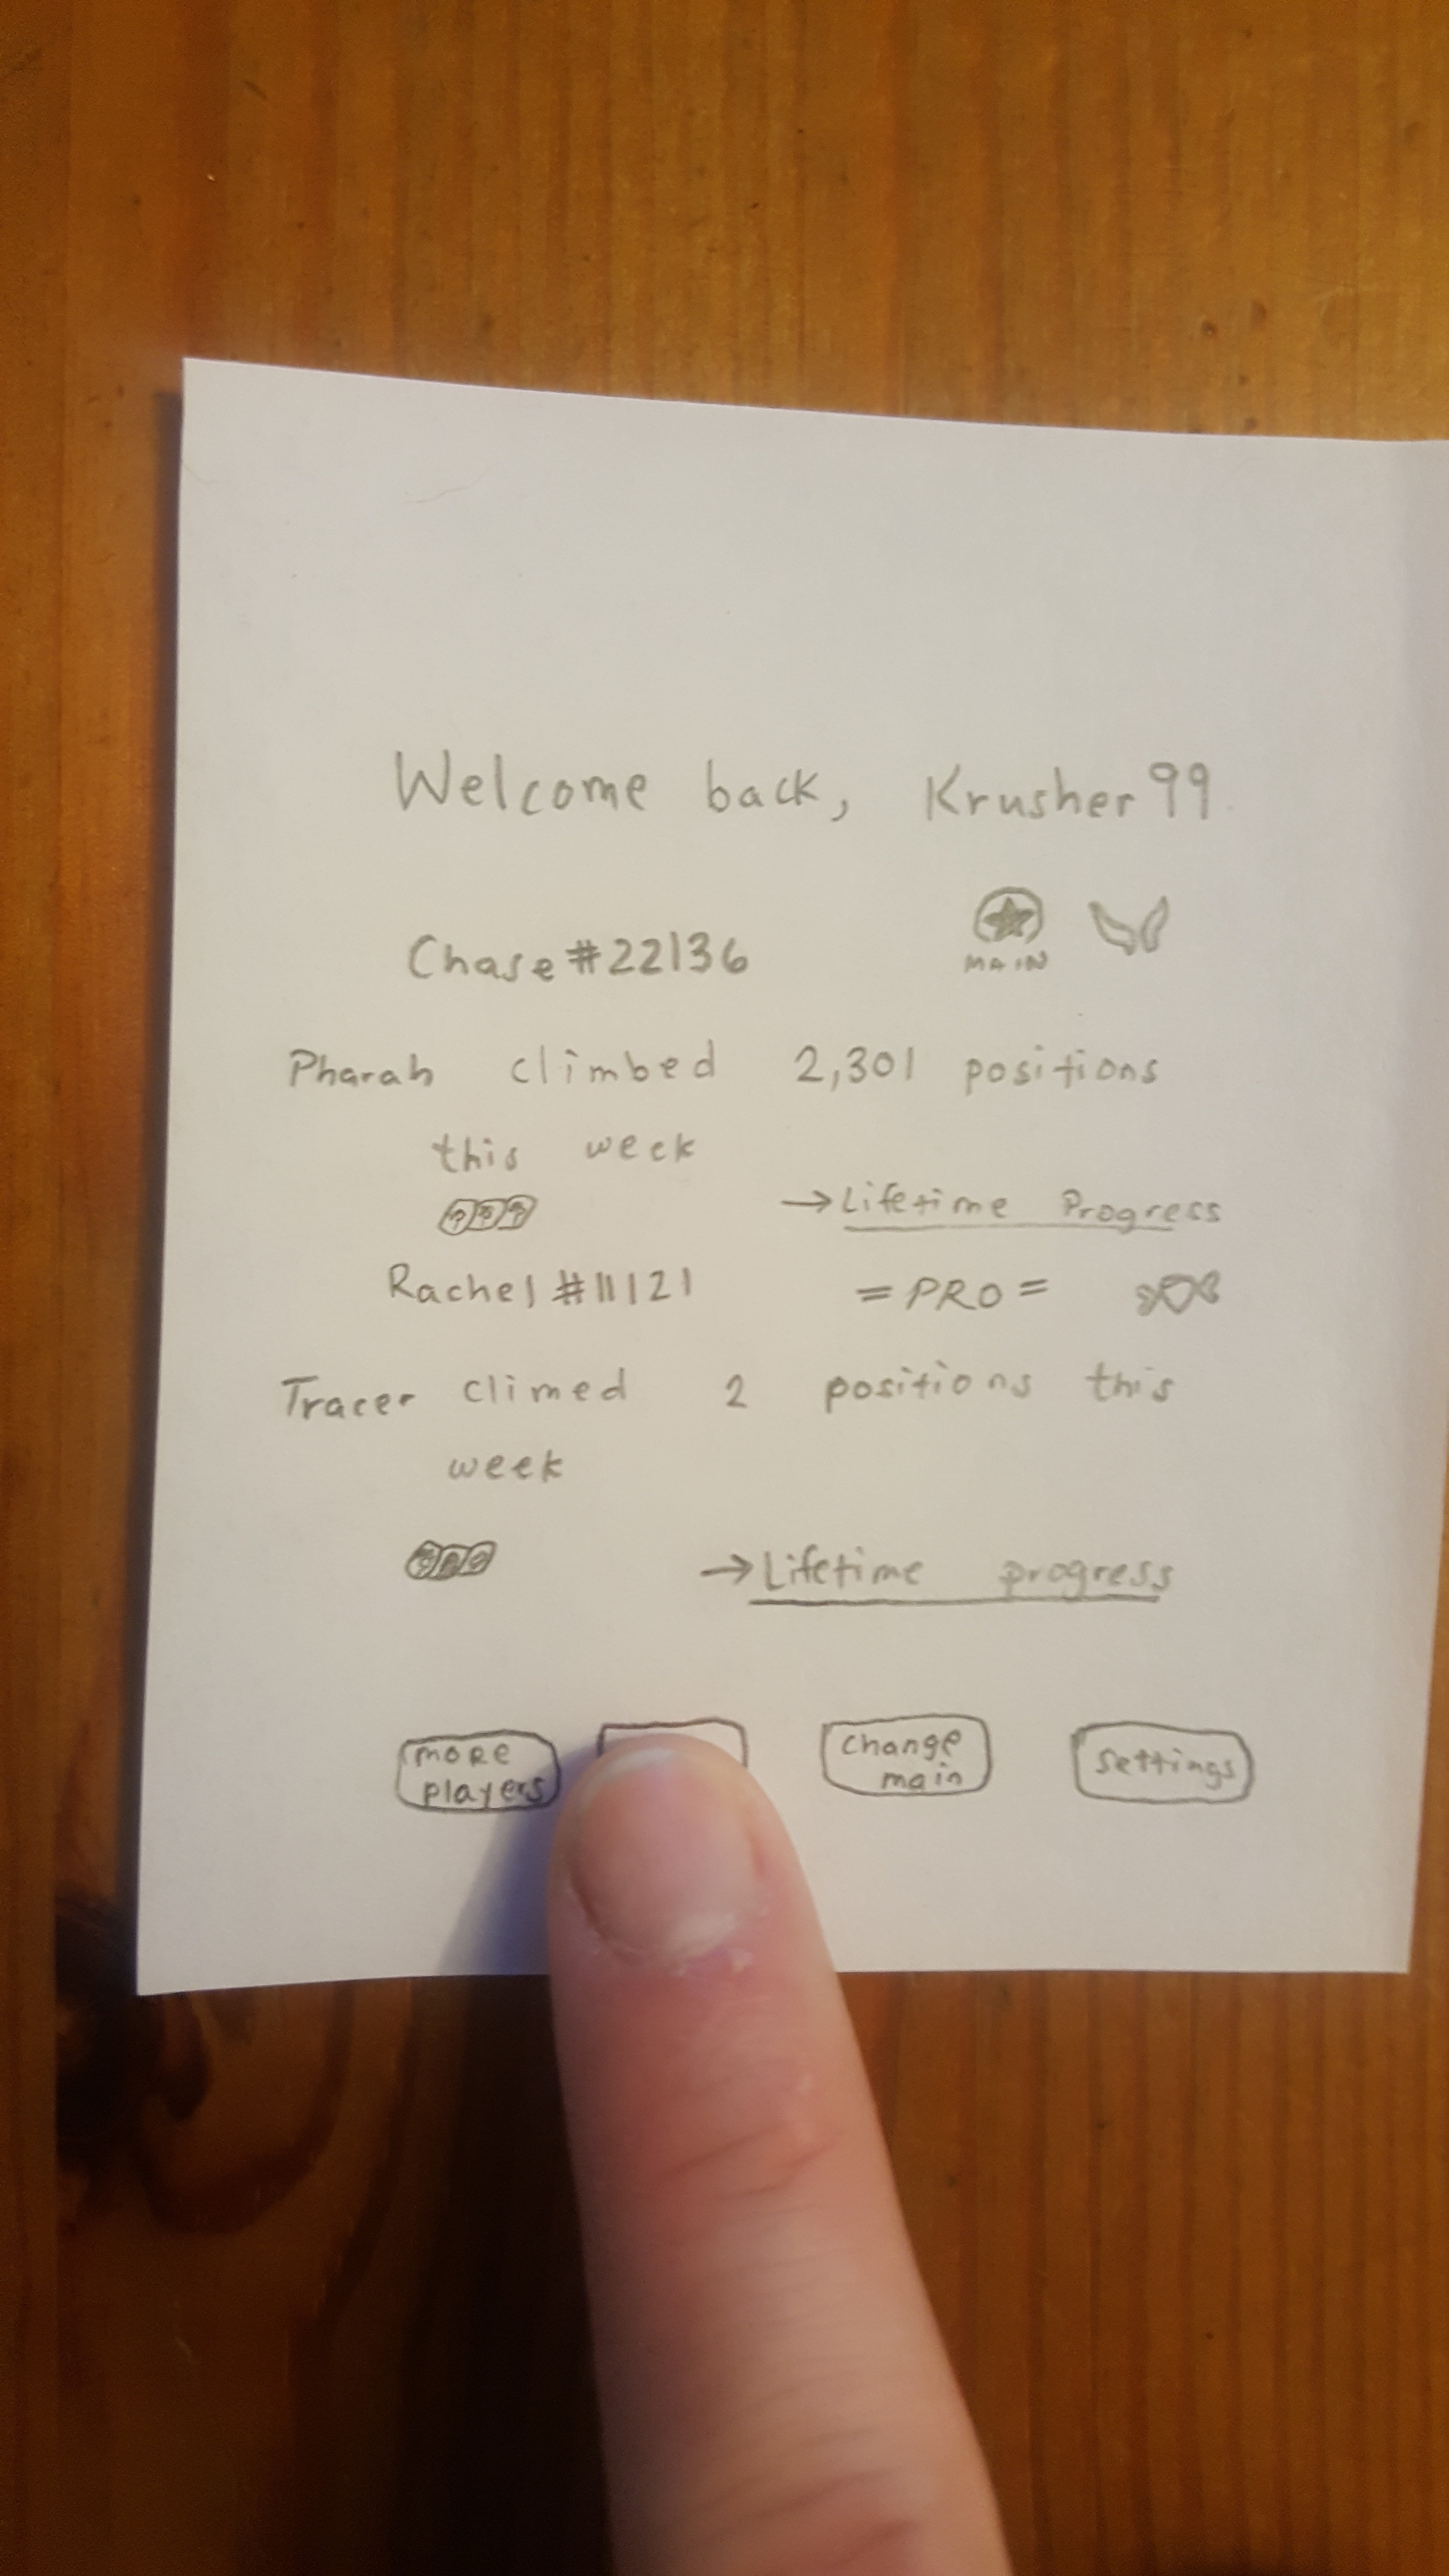 Welcome back, Krusher99
Chase#22136
MAIN
Pharah climbed 2,301 positions
this week
→Lifetime Progress
Rachel#11121 =PRO=
Tracer climed 2 positions this
week
→Lifetime progress
more
players
change
main
settings